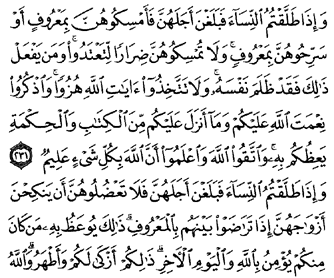 وَإِذَا طَلَّقْتُمُ ٱلنِّسَآءَ فَبَلَغْنَ أَجَلَهُنَّ فَأَمْسِكُوهُنَّ بِمَعْرُوفٍ أَوْ
سَرِّحُوهُنَّ بِمَعْرُوفٍۚ وَلَا تُمْسِكُوهُنَّ ضِرَارًا لِّتَعْتَدُوا۟ۚ وَمَن يَفْعَلْ
ذَٰلِكَ فَقَدْ ظَلَمَ نَفْسَهُۥۚ وَلَا تَتَّخِذُوٓا۟ ءَايَٰتِ ٱللَّهِ هُزُوًاۚ وَٱذْكُرُوا۟
نِعْمَتَ ٱللَّهِ عَلَيْكُمْ وَمَآ أَنزَلَ عَلَيْكُم مِّنَ ٱلْكِتَٰبِ وَٱلْحِكْمَةِ
يَعِظُكُم بِهِۦۚ وَٱتَّقُوا۟ ٱللَّهَ وَٱعْلَمُوٓا۟ أَنَّ ٱللَّهَ بِكُلِّ شَىْءٍ عَلِيمٌ ٢٣١
وَإِذَا طَلَّقْتُمُ ٱلنِّسَآءَ فَبَلَغْنَ أَجَلَهُنَّ فَلَا تَعْضُلُوهُنَّ أَن يَنكِحْنَ
أَزْوَٰجَهُنَّ إِذَا تَرَٰضَوْا۟ بَيْنَهُم بِٱلْمَعْرُوفِۗ ذَٰلِكَ يُوعَظُ بِهِۦ مَن كَانَ
مِنكُمْ يُؤْمِنُ بِٱللَّهِ وَٱلْيَوْمِ ٱلْءَاخِرِۗ ذَٰلِكُمْ أَزْكَىٰ لَكُمْ وَأَطْهَرُۗ وَٱللَّهُ